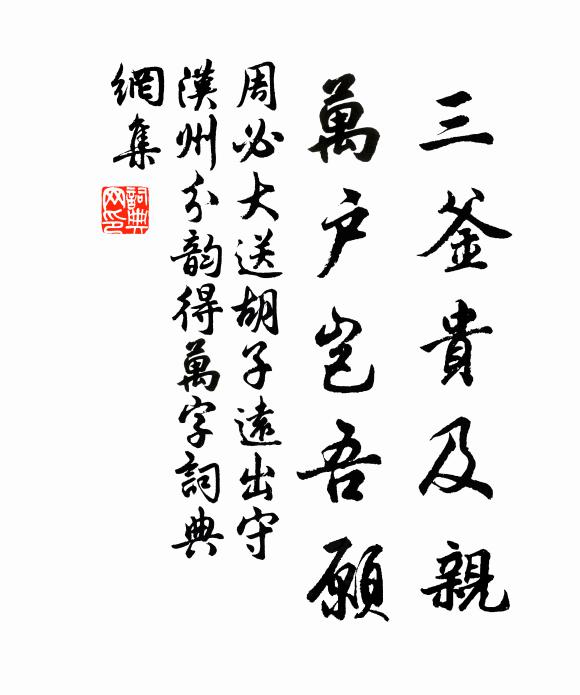 三釜貴及親
萬户豈吾願
周必大送胡子遠出守
漢州分韵得萬字詞典
網集
詞典網印